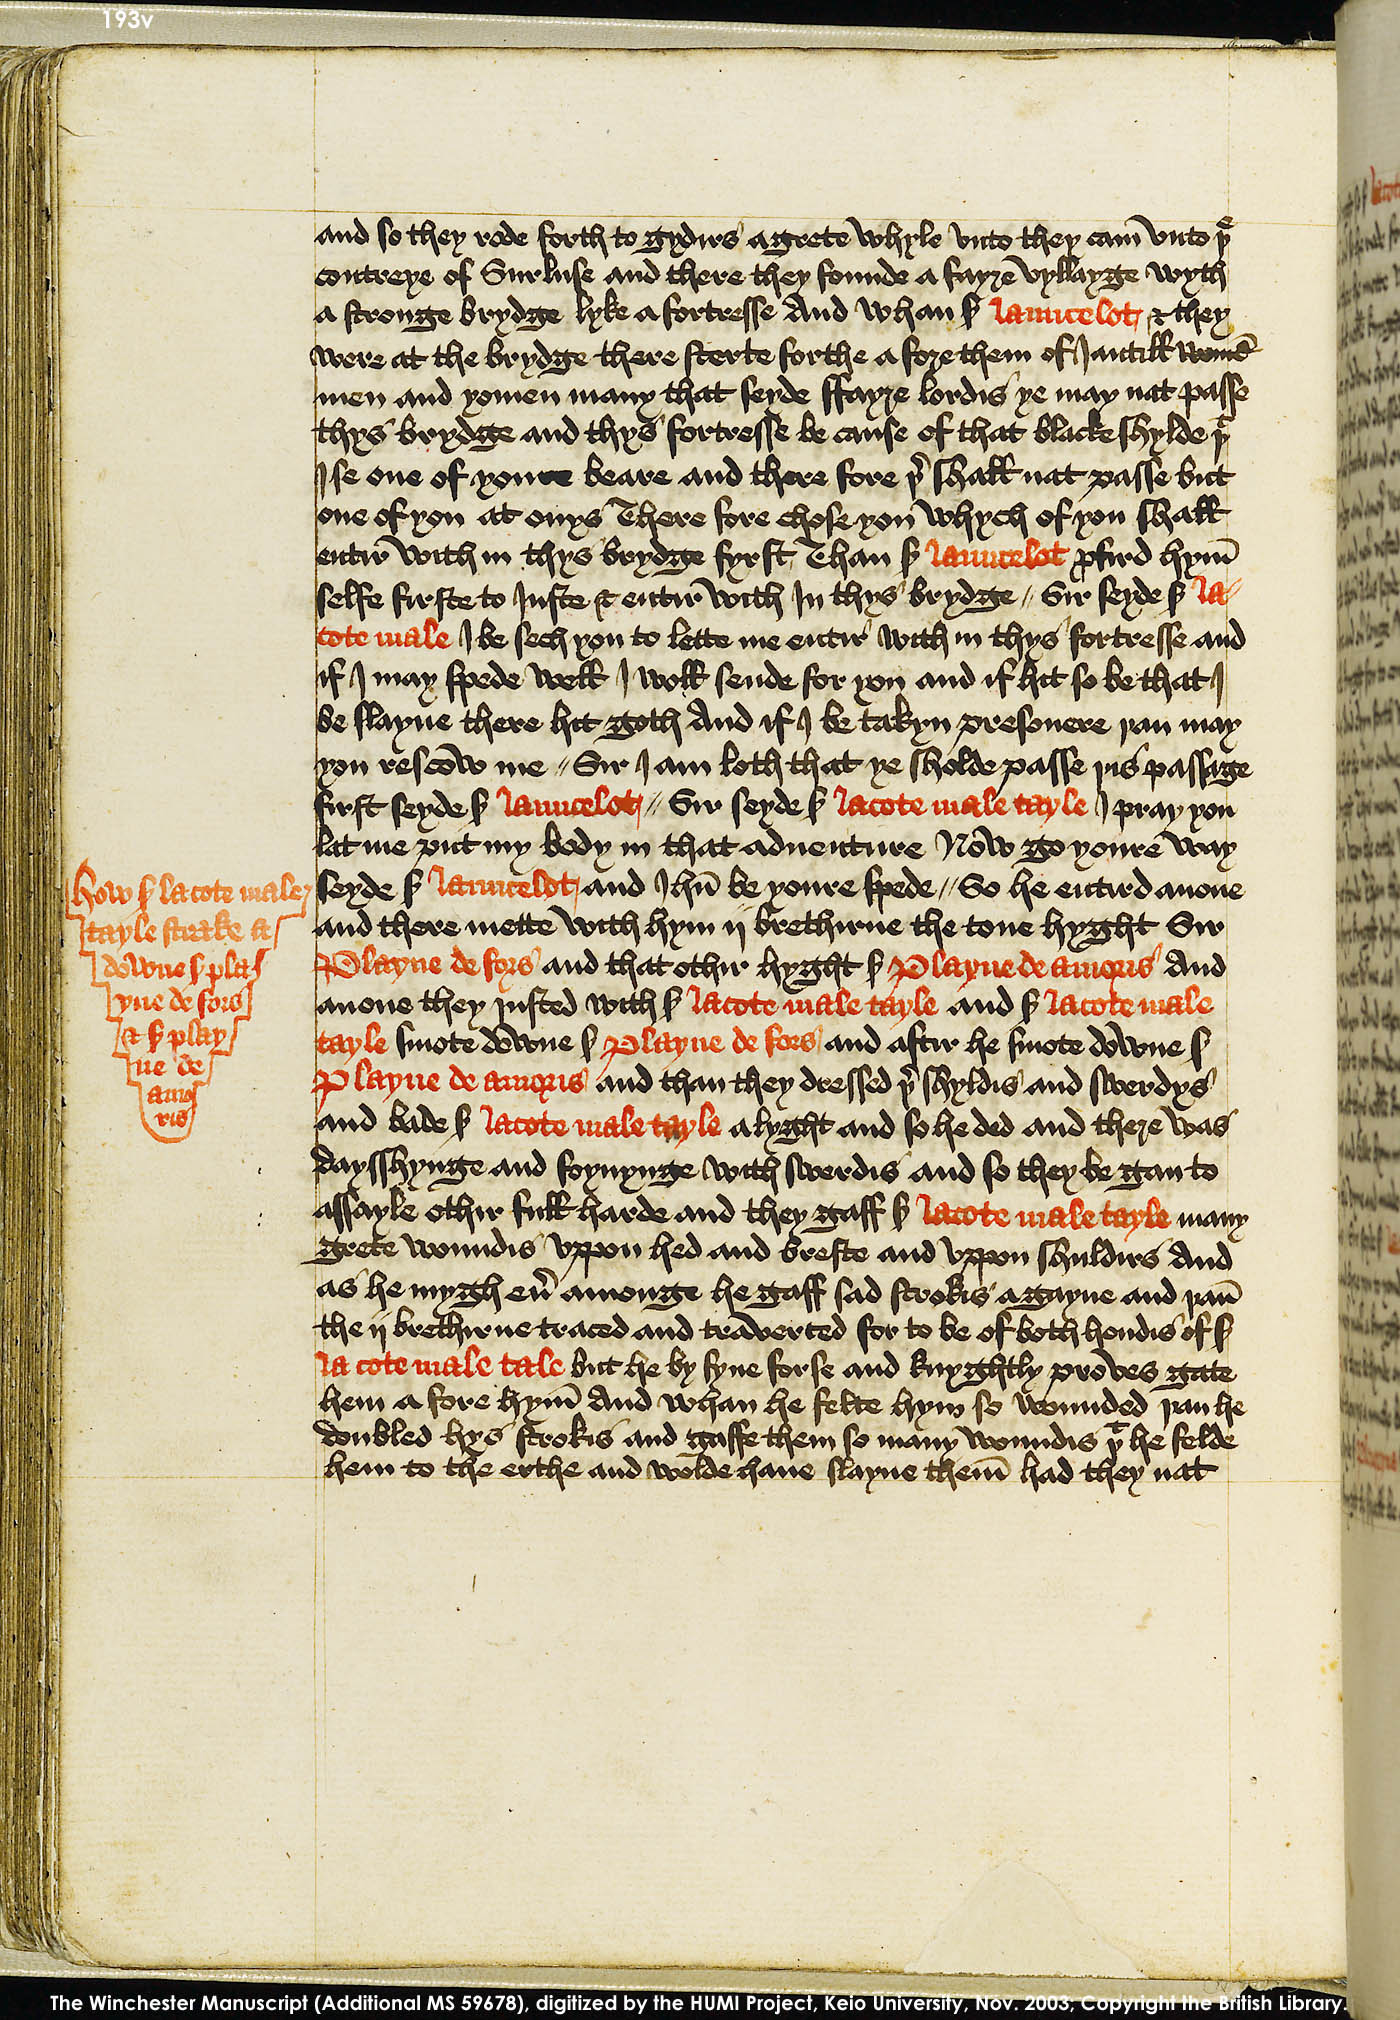 193v
and so they rode forth to gydirs a grete whyle vnto they cam̄ vnto þͤ
contreye of Surluse and there they founde a fayre vyllayge wyth
a stronge brydge lyke a fortresse And whan ẜ launcelot & they
were at the brydge there sterte forthe a fore them of Jantill
men and yomen many that seyde ffayre lordis ye may nat passe
thys brydge and thys fortresse be cause of that blacke shylde þͭ
I se one of you beare and there fore þ̉ shall nat passe but
one of you at onys There fore chose you whych of you shall
entir with in thys brydge fyrst Than ẜ launcelot ꝓfird hym̄
selfe firste to Iuste & entir with In thys brydge // Sir seyde ẜ la
cote male I be sech you to lette me entir with in thys fortresse and
if I may spede well I woll sende for you and if hit so be that I
be slayne there hit goth And if I be takyn presonere þan may
you rescow me // Sir I am loth that ye sholde passe þis passage
first seyde ẜ launcelot // Sir seyde ẜ lacote male tayle I pray you
lat me put my body in that aduenture Now go youre way
seyde ẜ launcelot and Ihū be youre spede // So he entird anone
and there mette with hym ij brethirne the tone hyght Sir
Playne de fors and that othir hyght ẜ Playne de amoris And
anone they Iusted with ẜ lacote male tayle and ẜ lacote male
tayle smote downe ẜ Playne de fors and aftir he smote downe ẜ
Playne de amoris and than they dressed þ̉ shyldis and swerdys
and bade ẜ lacote male tayle a lyght and so he ded and there was
daysshynge and foynynge with swerdis and so they be gan to
assayle othir full harde and they gaff ẜ lacote male tayle many
grete woundis vppon hed and breste and vppon shuldirs And
as he mygh eủ amonge he gaff sad strokis a gayne and þan̄
the ij brethirne traced and trauerced for to be of both hondis of ẜ
la cote male tale but he by fyne forse and knyghtly proves gate
hem a fore hym̄ And whan he felte hym so wounded þan he
doubled hys strokis and gaffe them so many woundis þͭ he felde
hem to the erthe and wolde haue slayne them̄ had they nat
how ẜ la cote male
tayle strake
downe ẜ pla
yne de fors
& ẜ play
ne de
amo
ris
The Winchester Manuscript (Additional MS 59678), digitized by the HUMI Project, Keio University, Nov. 2003; Copyright the British Library.